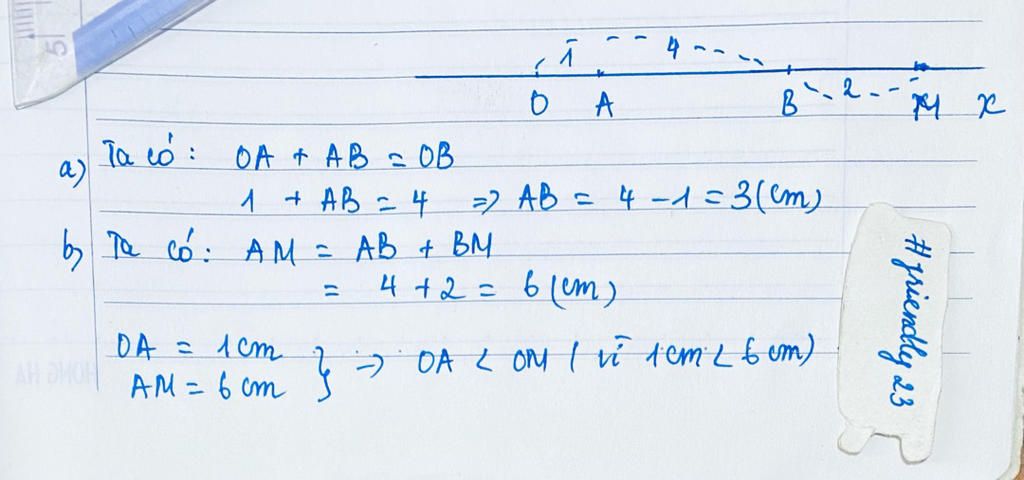 5
1 4
O A B 2 M x
a) Ta có: OA + AB = OB
1 + AB = 4 => AB = 4 - 1 = 3 (cm)
b) Ta có: AM = AB + BM
= 4 + 2 = 6 (cm)
OA = 1cm
AM = 6 cm } => OA < OM ( vì 1cm < 6 cm)
#friendly23
HONG HA